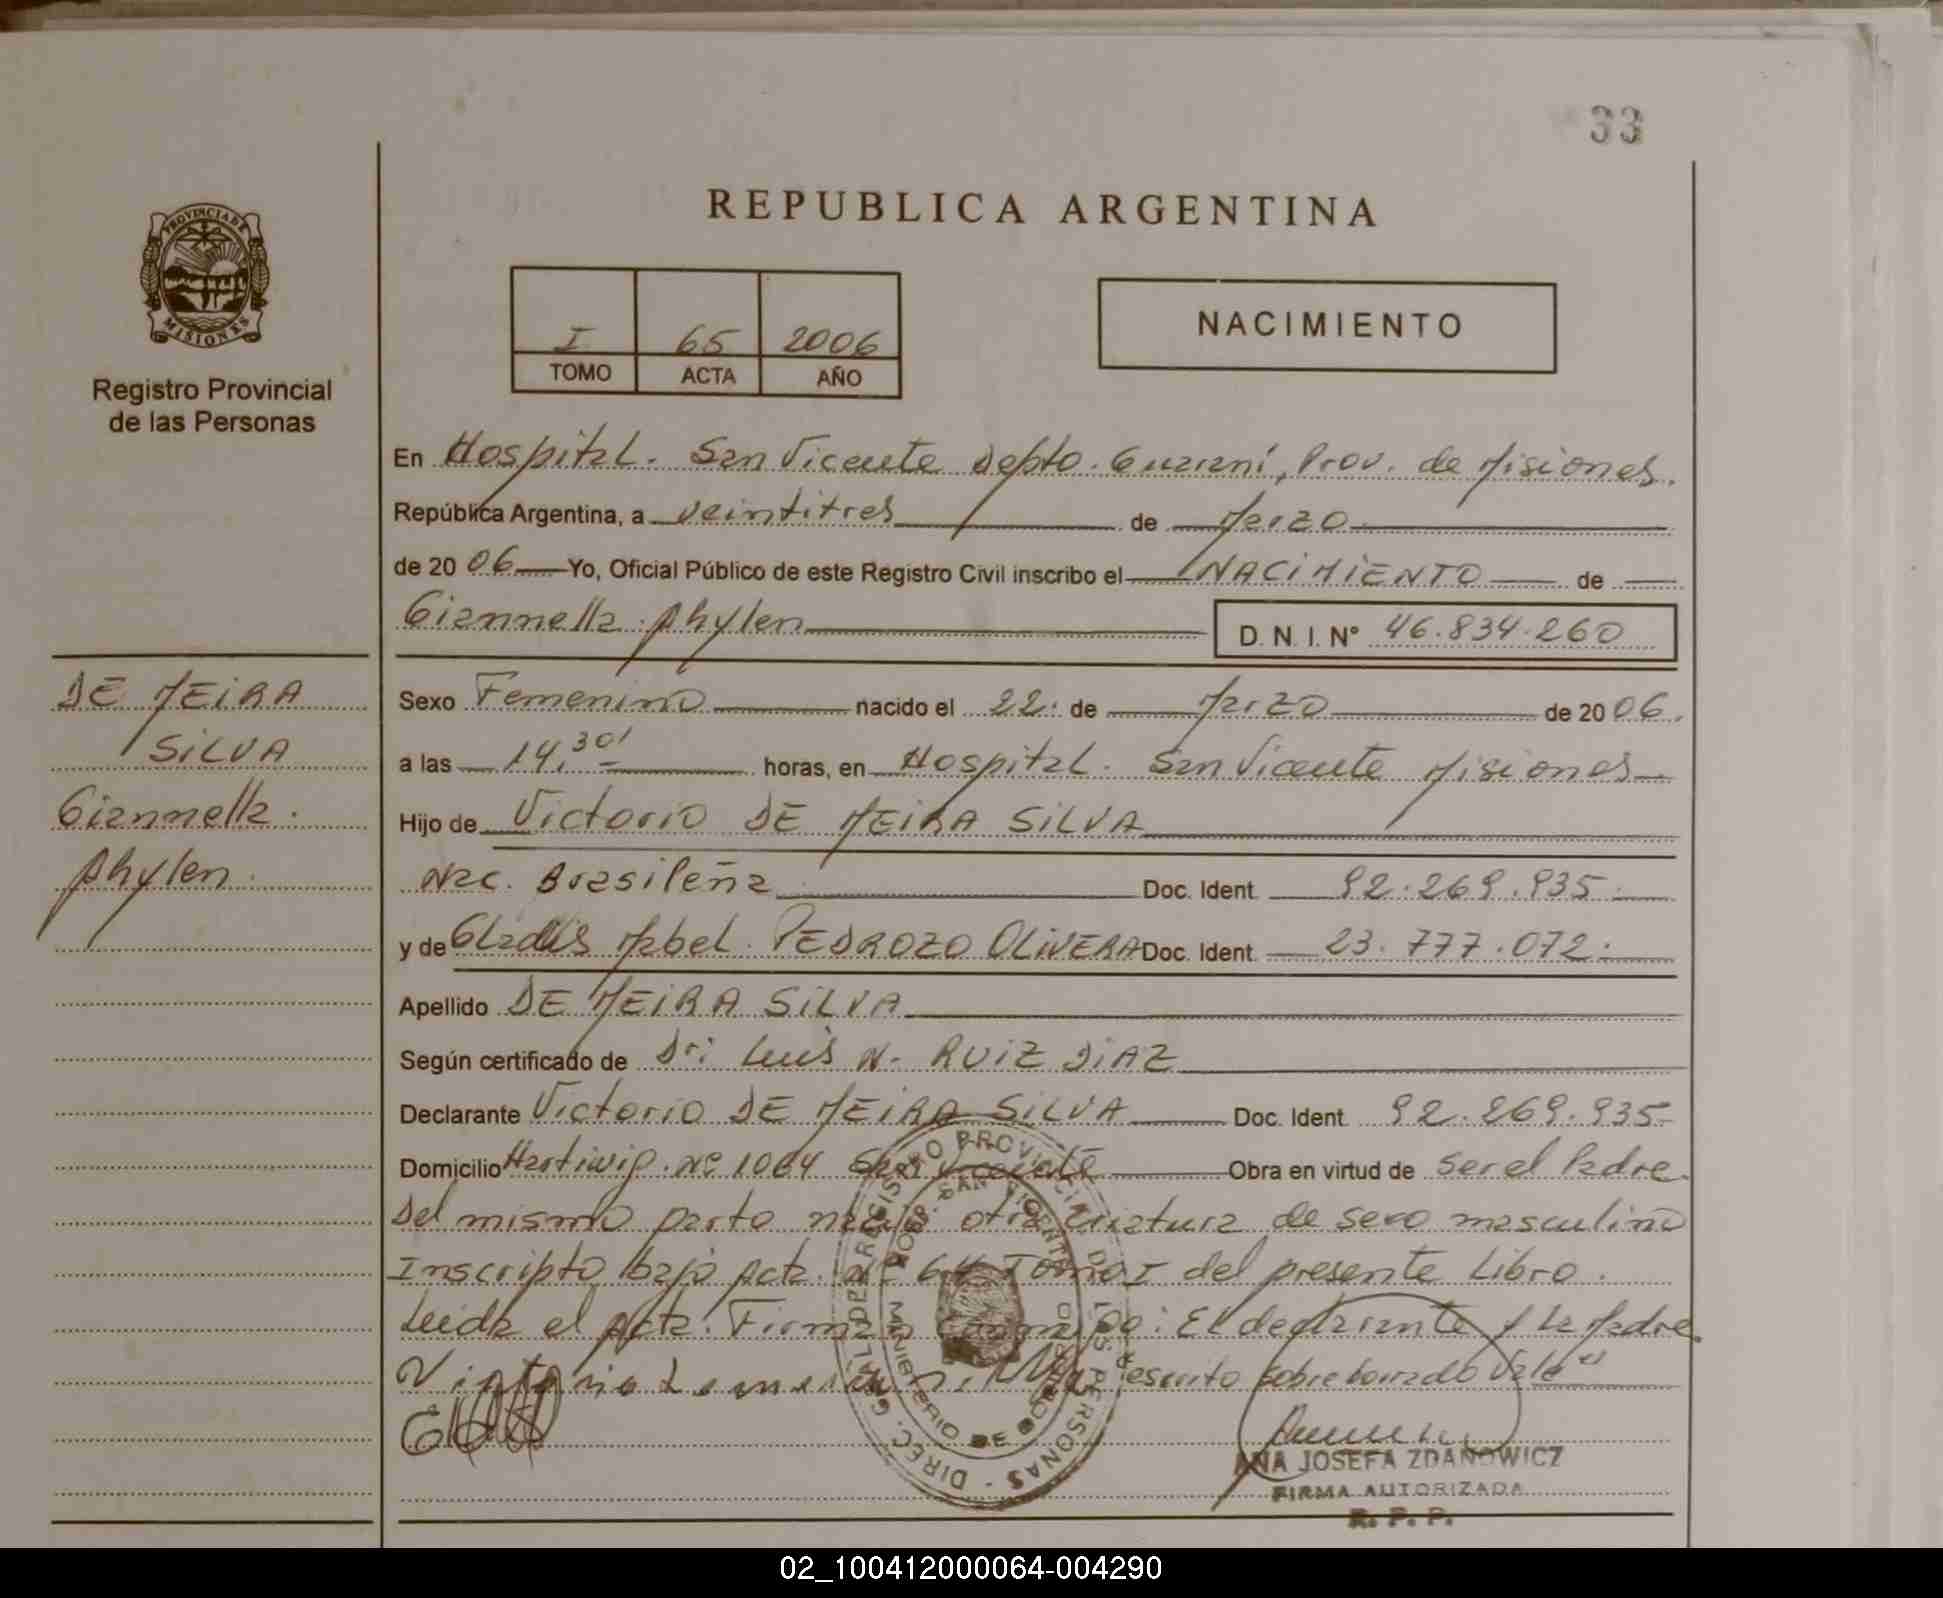 33
REPUBLICA ARGENTINA
PROVINCIA DE MISIONES
Registro Provincial
de las Personas
I 65 2006
TOMO ACTA AÑO
NACIMIENTO
En Hospital. San Vicente Depto. Guaraní, Prov. de Misiones.
República Argentina, a veintitres de Marzo
de 2006 Yo, Oficial Público de este Registro Civil inscribo el NACIMIENTO de
Giannella Ahylen D. N. I. Nº 46.834.260
DE MEIRA
SILVA
Giannella.
Ahylen.
Sexo Femenino nacido el 22. de Marzo de 2006.
a las 14,30' horas, en Hospital. San Vicente Misiones
Hijo de Victorio DE MEIRA SILVA
Nac. Brasileña Doc. Ident. 92.269.935.
y de Gladis Mabel. PEDROZO OLIVERA Doc. Ident. 23.777.072.
Apellido DE MEIRA SILVA
Según certificado de Dr: Luis N. RUIZ DIAZ
Declarante Victorio DE MEIRA SILVA Doc. Ident. 92.269.935
Domicilio Hartiwig. Nº 1064 San Vicente Obra en virtud de ser el Padre.
Del mismo parto nacio otra criatura de sexo masculino
Inscripto bajo Acta. Nº 64 Tomo I del presente Libro.
Leida el Acta. Firman conmigo: El declarante y la Madre.
"escrito sobre borrado Vale"
DIREC. GRAL. DE REGISTRO PROVINCIAL DE LAS PERSONAS
HOSP. SAN VICENTE
MINISTERIO DE GOBIERNO
ANA JOSEFA ZDANOWICZ
FIRMA AUTORIZADA
R. P. P.
02_100412000064-004290